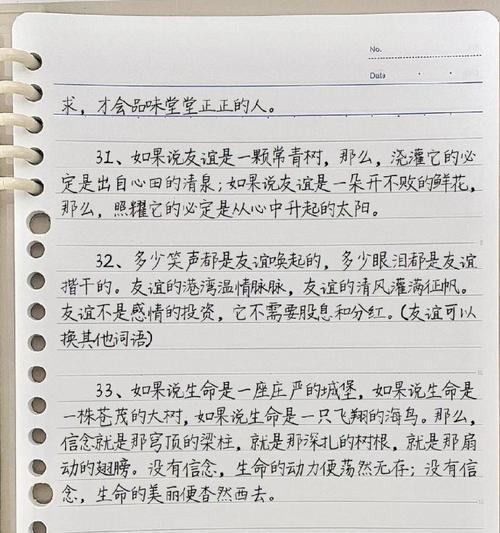 No.
Date
求，才会品味堂堂正正的人。
31、如果说友谊是一颗常青树，那么，浇灌它的必
定是出自心田的清泉；如果说友谊是一朵开不败的鲜花，
那么，照耀它的必定是从心中升起的太阳。
32、多少笑声都是友谊唤起的，多少眼泪都是友谊
揩干的。友谊的港湾温情脉脉，友谊的清风灌满征帆。
友谊不是感情的投资，它不需要股息和分红。（友谊可以
换其他词语）
33、如果说生命是一座庄严的城堡，如果说生命是
一株苍茂的大树，如果说生命是一只飞翔的海鸟。那么，
信念就是那穹顶的梁柱，就是那深扎的树根，就是那扇
动的翅膀。没有信念，生命的动力便荡然无存；没有信
念，生命的美丽便杳然西去。